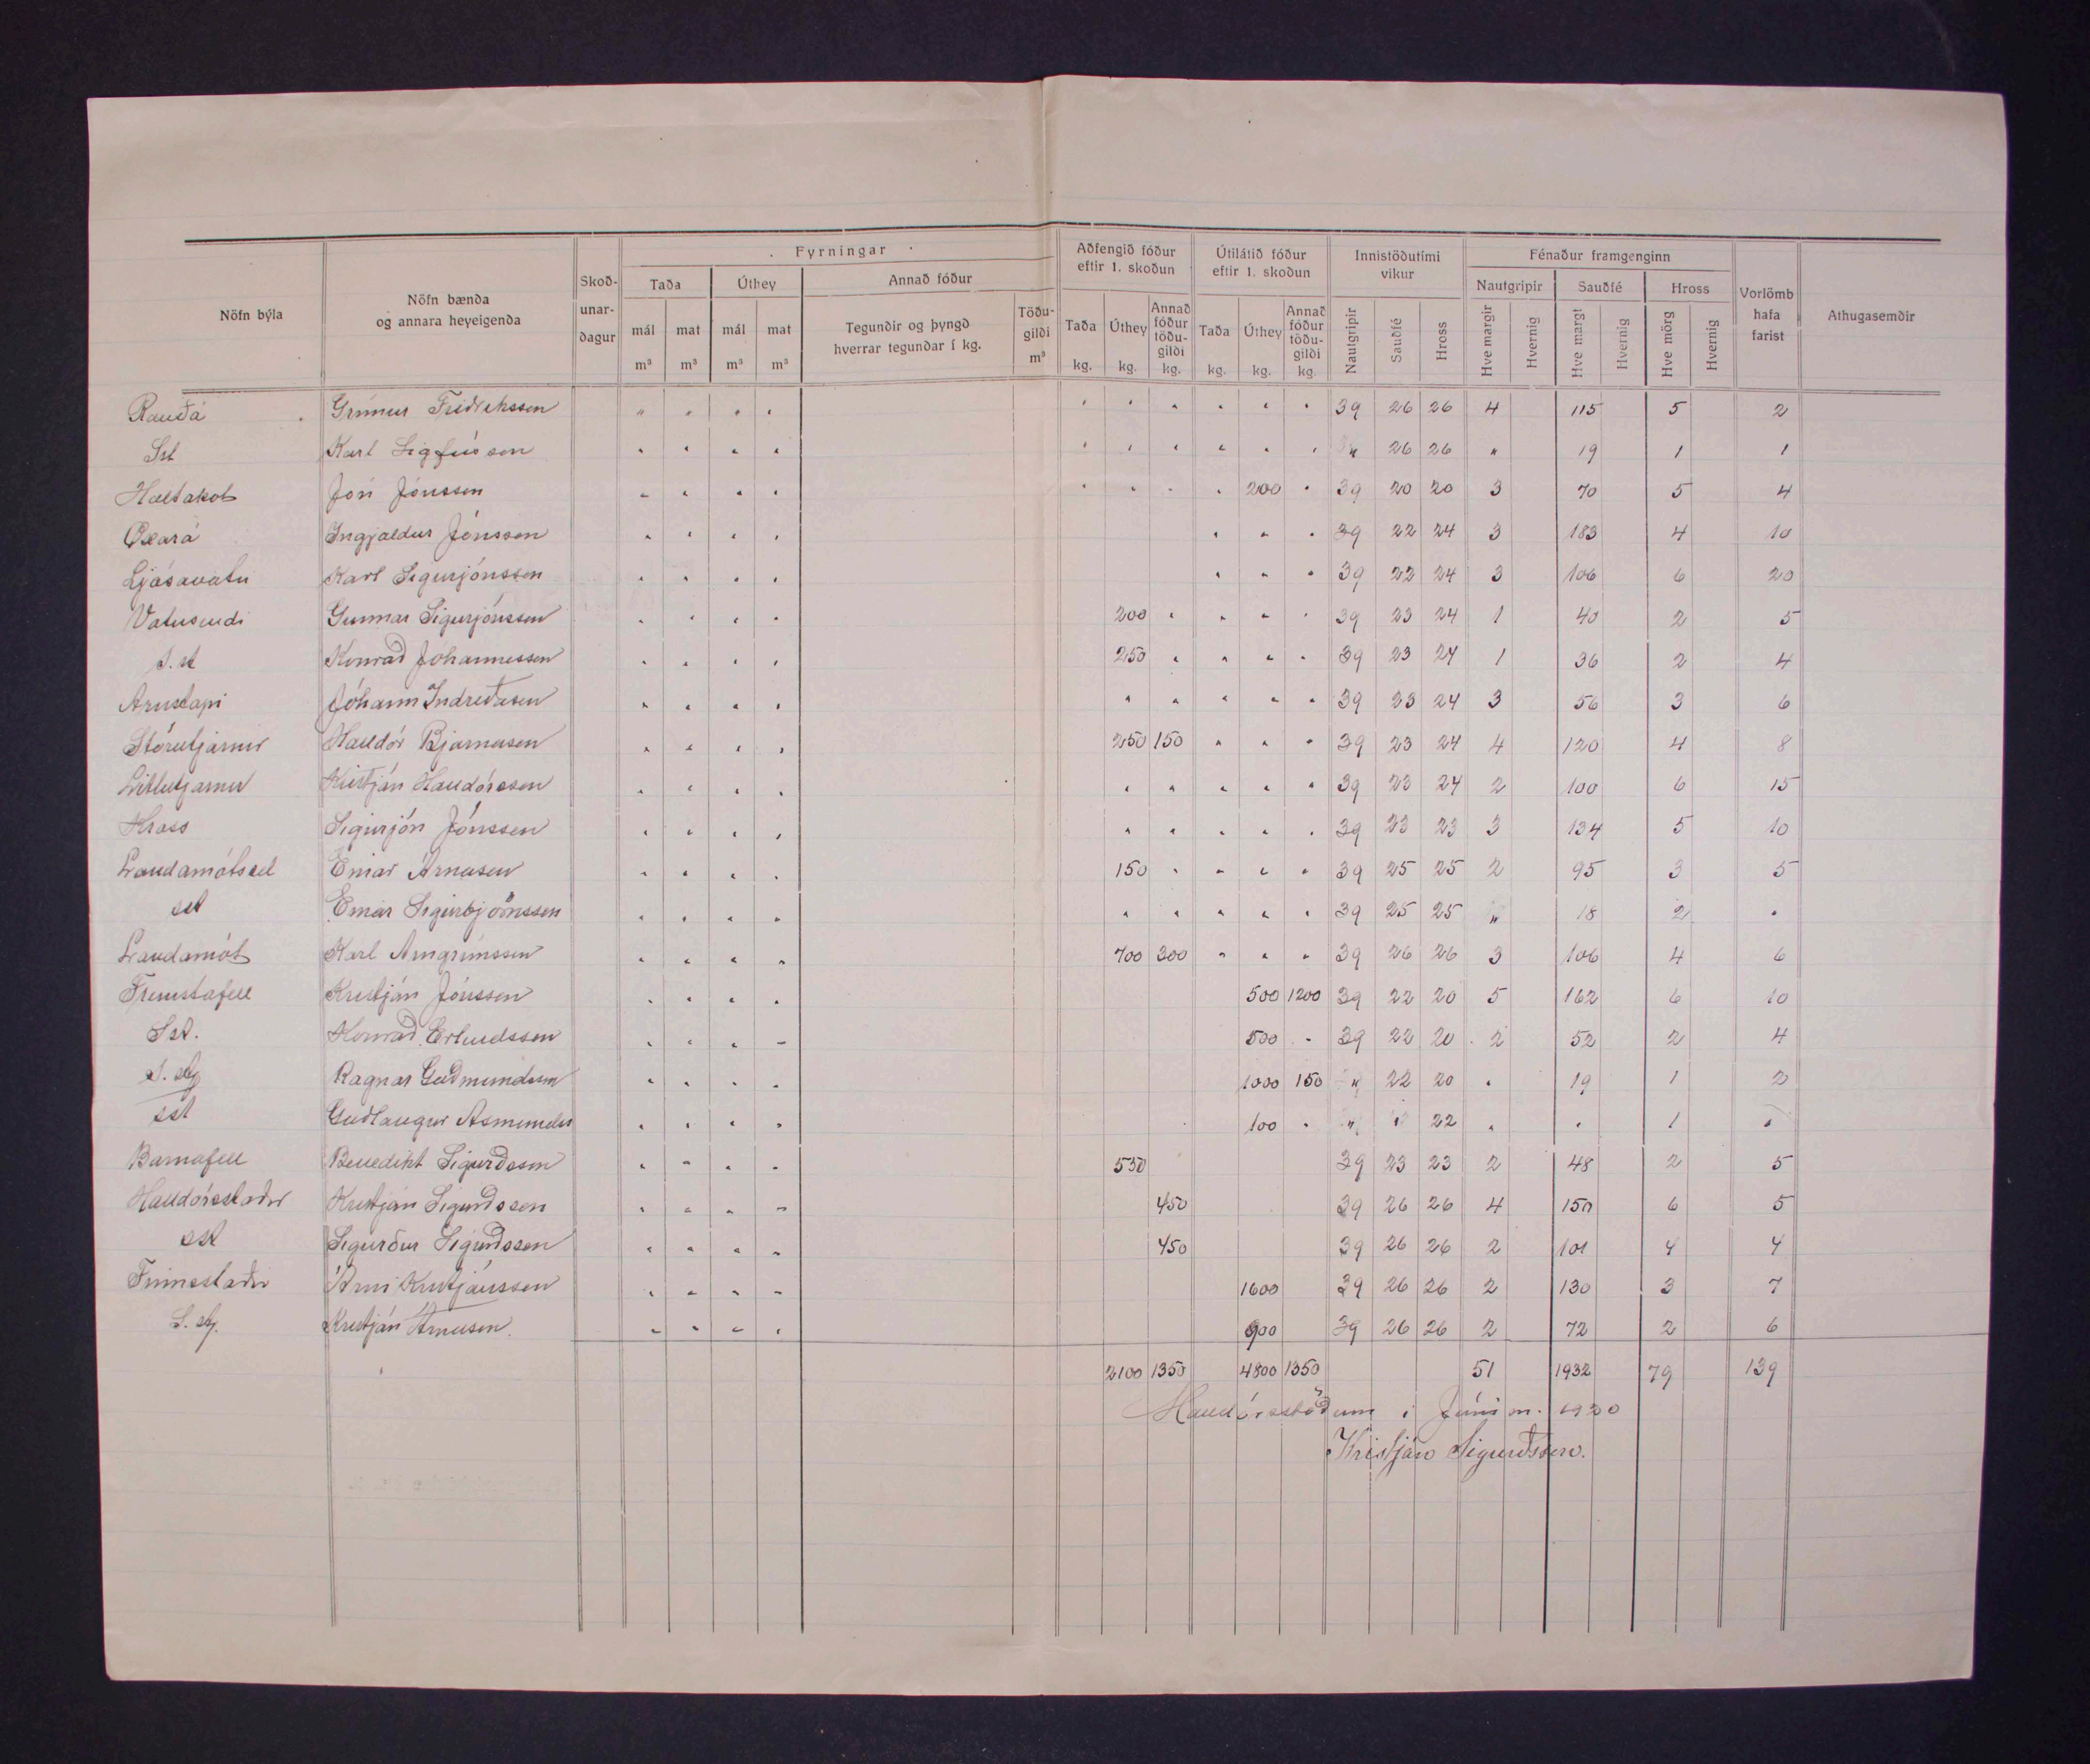 Fyrningar
Aðfengið fóður eftir 1. skoðun
Útilátið fóður eftir 1. skoðun
Innistöðutími vikur
Fénaður framgenginn
Nöfn býla
Nöfn bænda og annara heyeigenda
Skoð-unar-dagur
Taða
Úthey
Annað fóður
Nautgripir
Sauðfé
Hross
Vorlömb hafa farist
Athugasemdir
mál m³
mat m³
mál m³
mat m³
Tegundir og þyngd hverrar tegundar í kg.
Töðu-gildi m³
Taða kg.
Úthey kg.
Annað fóður töðu-gildi kg.
Taða kg.
Úthey kg.
Annað fóður töðu-gildi kg.
Nautgripir
Sauðfé
Hross
Hve margir
Hvernig
Hve margt
Hvernig
Hve mörg
Hvernig
Rauðá Grímur Friðrikssen " " " " " " " " " " 39 26 26 4 115 5 2
Sst Karl Sigfússon " " " " " " " " " " " 26 26 " 19 1 1
Holtakot Jón Jónssen " " " " " " " " 200 " 39 20 20 3 70 5 4
Oxará Ingjaldur Jónsson " " " " " " " 39 22 24 3 183 4 10
Ljósavatn Karl Sigurjónsson " " " " " " " 39 22 24 3 106 6 20
Vatnsendi Gunnar Sigurjónsson " " " " 200 " " " " 39 23 24 1 40 2 5
S. st Konrað Jóhannesson " " " " 250 " " " " 39 23 24 1 36 2 4
Arnstapi Jóhann Indreðasen " " " " " " " " " 39 23 24 3 56 3 6
Stórutjarnir Halldór Bjarnasen " " " " 250 150 " " " 39 23 24 4 120 4 8
Litlutjarnir Kristján Halldórsson " " " " " " " " " 39 23 24 2 100 6 15
Kross Sigurjón Jónssen " " " " " " " " " 39 23 23 3 134 5 10
Landamótssel Einar Árnasen " " " " 150 " " " " 39 25 25 2 95 3 5
sst Einar Sigurbjörnssen " " " " " " " " " 39 25 25 " 18 2 "
Landamót Karl Arngrímssen " " " " 700 300 " " " 39 26 26 3 106 4 6
Fremstafell Kristján Jónssen " " " " 500 1200 39 22 20 5 162 6 10
Sst. Konrað Erlendsson " " " " 500 " 39 22 20 2 52 2 4
S. stg Ragnar Guðmundsson " " " " 1000 150 " 22 20 " 19 1 2
sst Guðlaugur Asmunds " " " " 100 " " " 22 " " 1 "
Barnafell Benedikt Sigurðsson " " " " 530 39 23 23 2 48 2 5
Halldórsstaðir Kristján Sigurðsson " " " " 450 39 26 26 4 150 6 5
sst Sigurður Sigurðsson " " " " 450 39 26 26 2 101 4 4
Finnsstaðir Árni Kristjánssen " " " " 1600 39 26 26 2 130 3 7
S. stg. Kristján Árnasen " " " " 900 39 26 26 2 72 2 6
2100 1350 4800 1350 51 1932 79 139
Halldórsstöðum í Júní m. 1920
Kristján Sigurðsson.